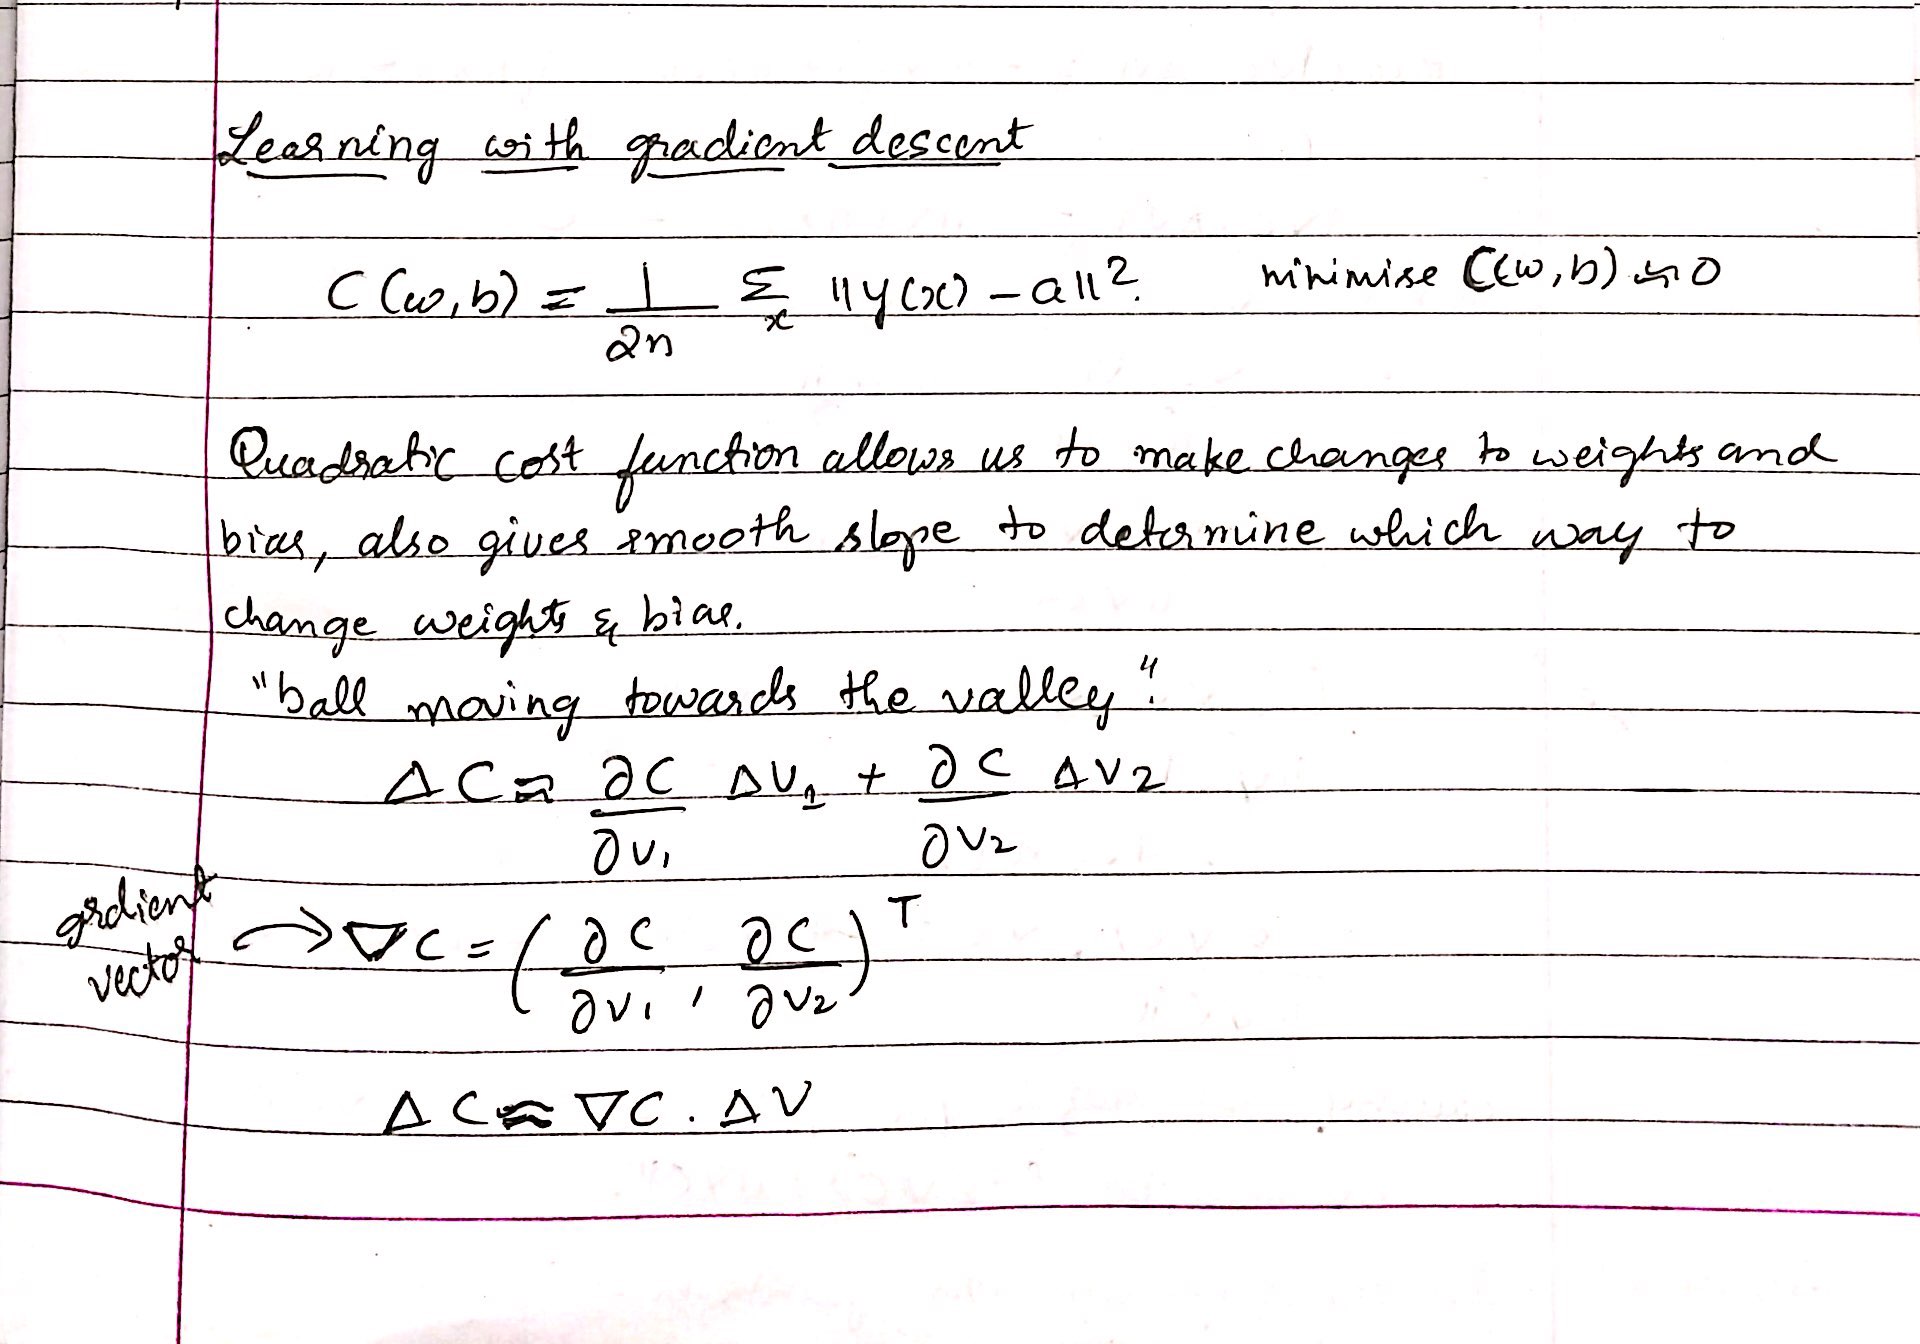 Learning with gradient descent
C(w,b) = 1/2n Σx ||y(x) - a||². minimise C(w,b) ≈ 0
Quadratic cost function allows us to make changes to weights and
bias, also gives smooth slope to determine which way to
change weights & bias.
"ball moving towards the valley".
ΔC ≈ ∂C/∂v₁ Δv₁ + ∂C/∂v₂ Δv₂
grdient
vector → ∇C = (∂C/∂v₁, ∂C/∂v₂)ᵀ
ΔC ≈ ∇C . ΔV